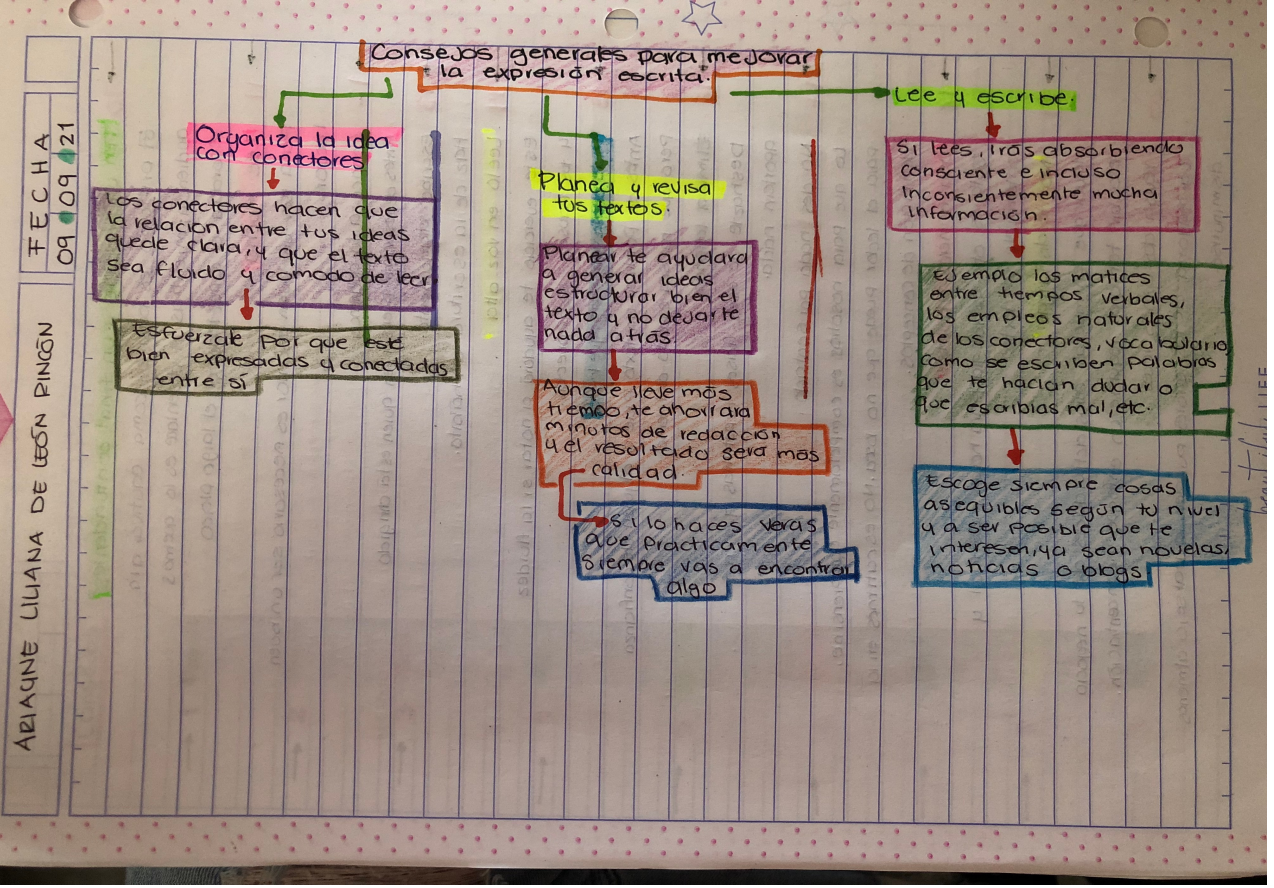 Consejos generales para mejorar
la expresión escrita.
Organiza la idea
con conectores
Los conectores hacen que
la relacion entre tus ideas
quede clara, y que el texto
sea fluido y comodo de leer
Esfuerzate por que esté
bien expresadas y conectadas
entre sí
Planea y revisa
tus textos.
Planear te ayudara
a generar ideas
estructurar bien el
texto y no dejarte
nada atrás.
Aunque lleve más
tiempo, te ahorrara
minutos de redacción
y el resultado sera más
calidad.
Si lo haces veras
que practicamente
siempre vas a encontrar
algo
Lee y escribe.
Si lees, iras absorbiendo
consciente e incluso
inconsientemente mucha
información.
Ejemplo los matices
entre tiempos verbales,
los empleos naturales
de los conectores, vocabulario,
como se escriben palabras
que te hacian dudar o
que escribias mal, etc.
Escoge siempre cosas
asequibles según tu nivel
y a ser posible que te
interesen, ya sean novelas,
noticias o blogs
FECHA
09 09 21
ARIAYNE LILIANA DE LEÓN RINCÓN